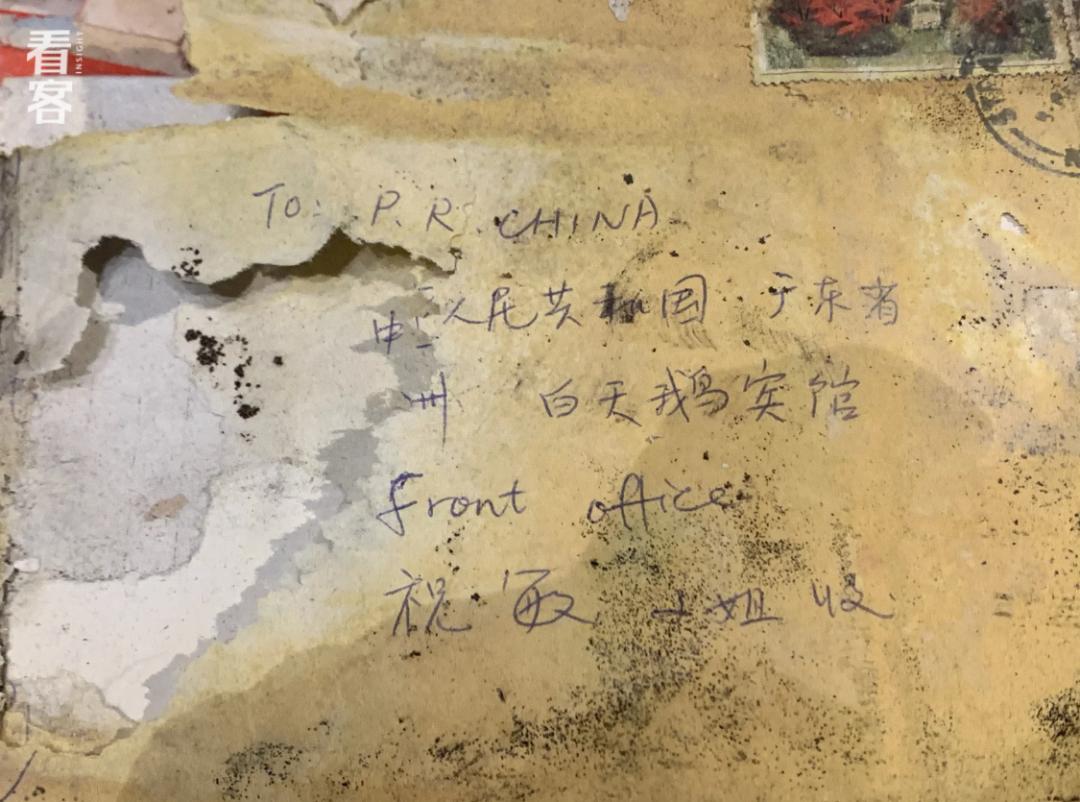 看客
INSIGHT
To: P.R.CHINA
人民共和国 广东省
州 白天鹅宾馆
front office
祝敏 小姐收